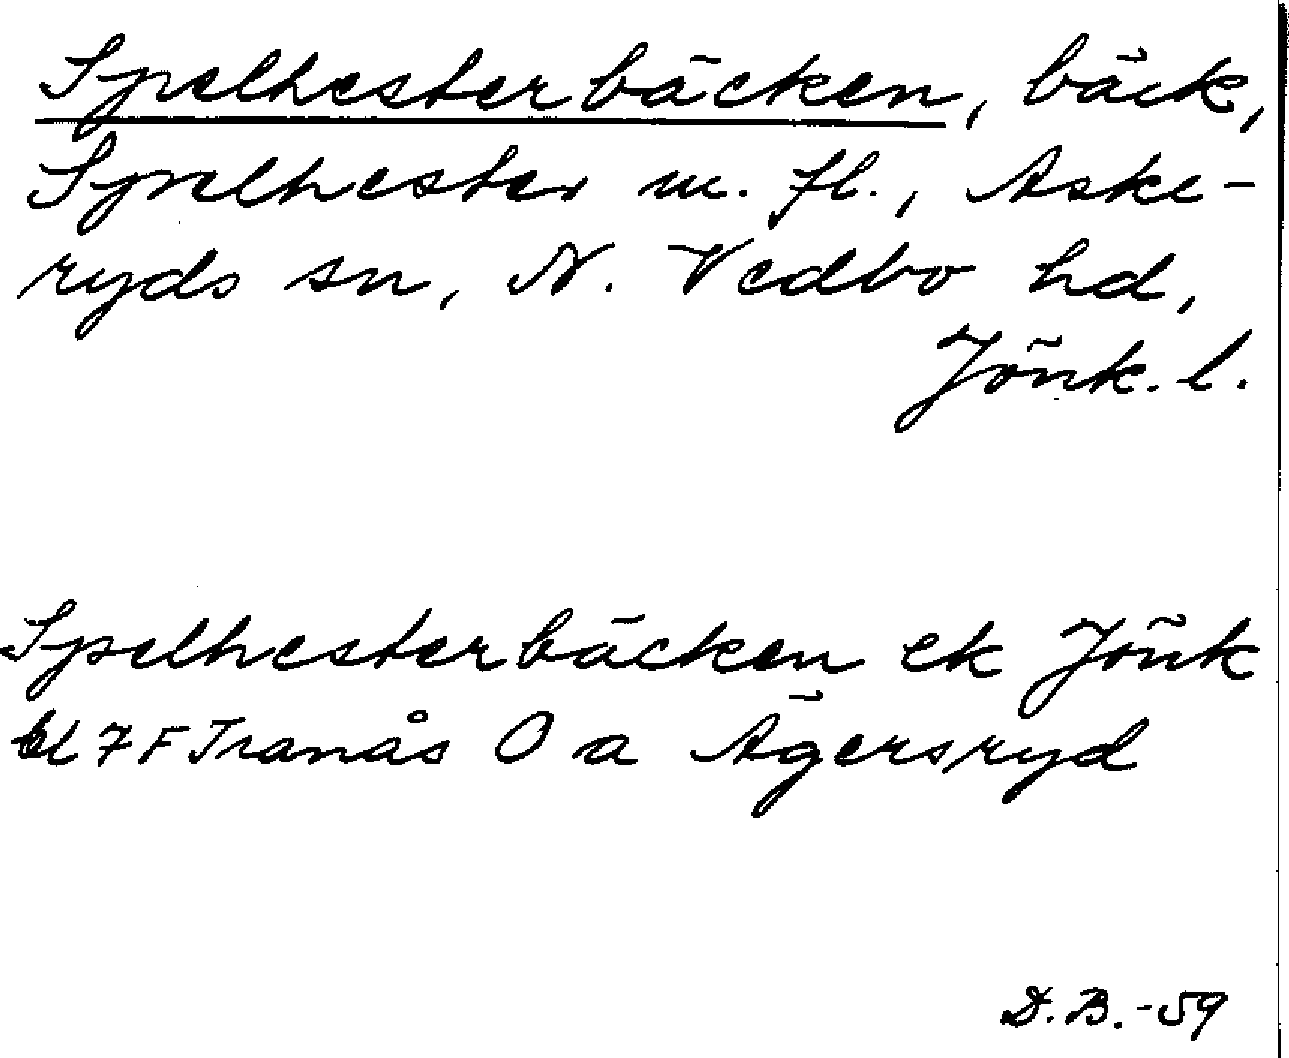 Spelhesterbäcken, bäck,
Spelhester m. fl., Aske-
ryds sn, N. Vedbo hd,
Jönk. l.
Spelhesterbäcken ek Jönk
bl 7 F Tranås O a Ägersryd
D.B.-59